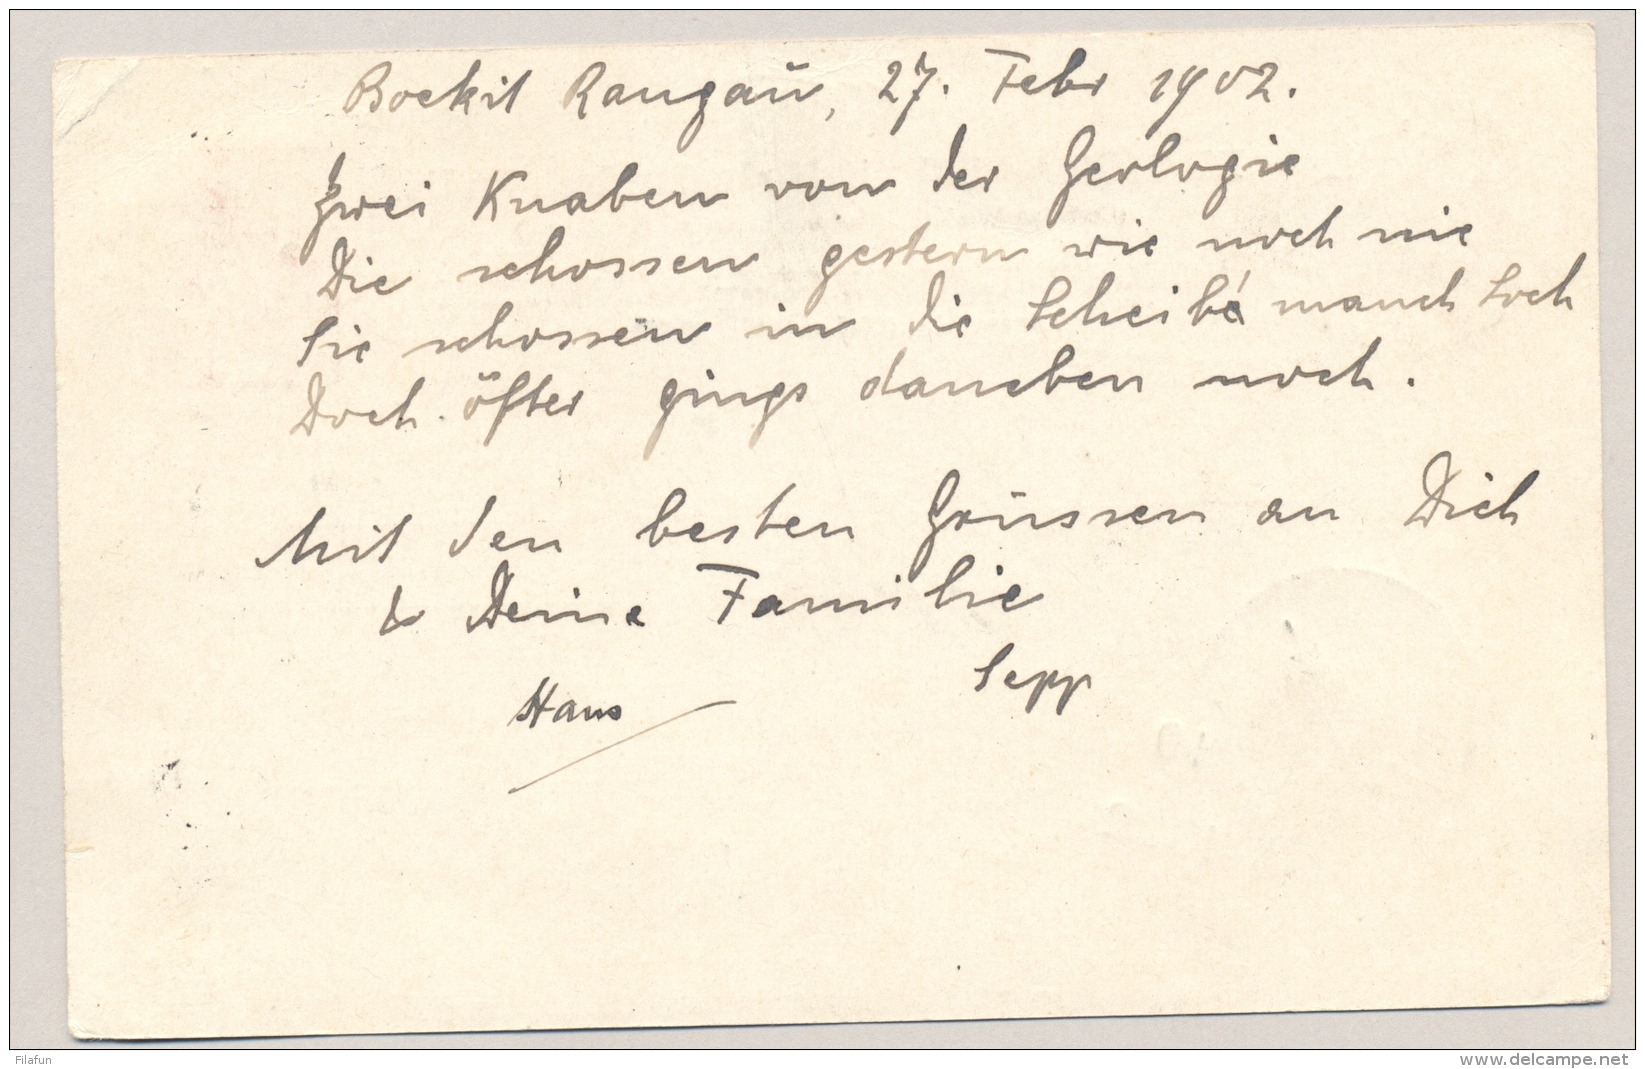 Boekit Rangaū, 27. Febr 1902.
Zwei Knaben von der Geologie
Die schossen gestern wie noch nie
Sie schossen in die Scheib' manch Loch
Doch öfter gings daneben noch.
Mit den besten Grüssen an Dich
& Deine Familie
Sepp
Hans
Filafun
www.delcampe.net